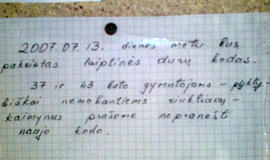 2007.07.13. dienos metu bus
pakeistas laiptinės durų kodas.
37 ir 43 buto gyventojams - piktybiškai
nemokantiems rinkliavų -
kaimynus prašome nepranešti
naujo kodo.